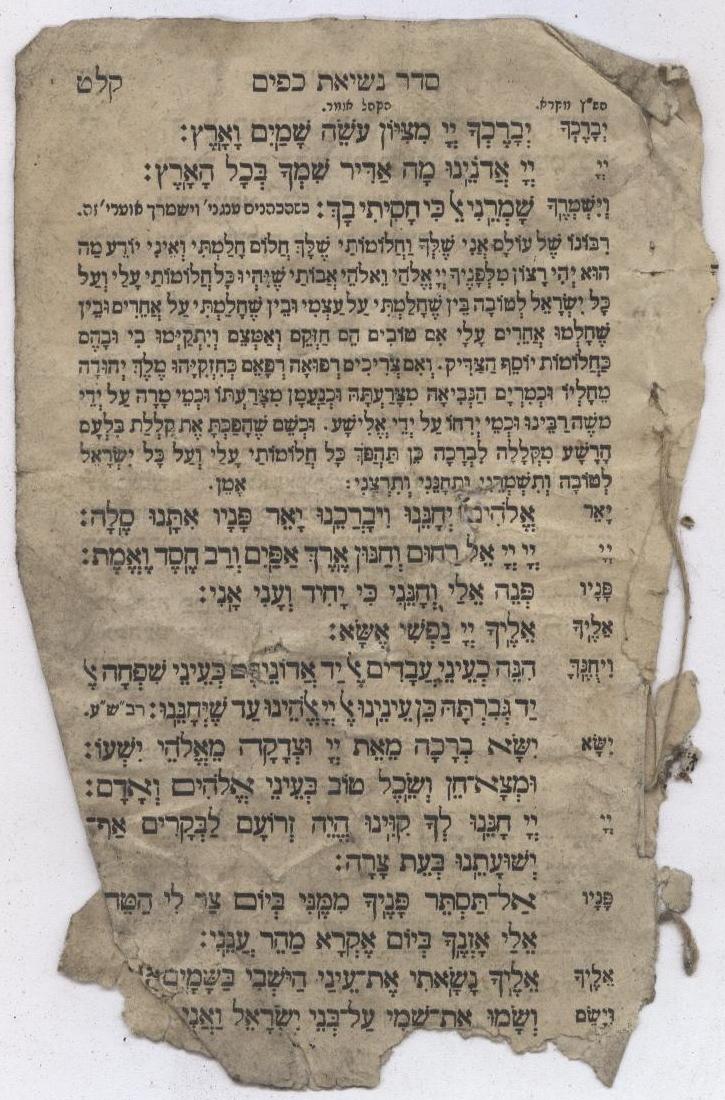 סדר נשיאת כפים קלט
הש״ץ מקרא. הקהל אומר.
יְבָרֶכְךָ יְבָרֶכְךָ יְיָ מִצִּיּוֹן עֹשֵׂה שָׁמַיִם וָאָרֶץ:
יְיָ יְיָ אֲדֹנֵינוּ מָה אַדִּיר שִׁמְךָ בְּכָל הָאָרֶץ:
וְיִשְׁמְרֶךָ שָׁמְרֵנִי אֵל כִּי חָסִיתִי בָךְ: כשהכהנים מנגני׳ וישמרך אומרי׳ זה.
רִבּוֹנוֹ שֶׁל עוֹלָם אֲנִי שֶׁלְּךָ וַחֲלוֹמוֹתַי שֶׁלָּךְ חֲלוֹם חָלַמְתִּי וְאֵינִי יוֹדֵעַ מַה
הוּא יְהִי רָצוֹן מִלְּפָנֶיךָ יְיָ אֱלֹהַי וֵאלֹהֵי אֲבוֹתַי שֶׁיִּהְיוּ כָּל חֲלוֹמוֹתַי עָלַי וְעַל
כָּל יִשְׂרָאֵל לְטוֹבָה בֵּין שֶׁחָלַמְתִּי עַל עַצְמִי וּבֵין שֶׁחָלַמְתִּי עַל אֲחֵרִים וּבֵין
שֶׁחָלְמוּ אֲחֵרִים עָלָי אִם טוֹבִים הֵם חַזְּקֵם וְאַמְּצֵם וְיִתְקַיְּמוּ בִי וּבָהֶם
כַּחֲלוֹמוֹת יוֹסֵף הַצַּדִּיק. וְאִם צְרִיכִים רְפוּאָה רְפָאֵם כְּחִזְקִיָּהוּ מֶלֶךְ יְהוּדָה
מֵחָלְיוֹ וּכְמִרְיָם הַנְּבִיאָה מִצָּרַעְתָּהּ וּכְנַעֲמָן מִצָּרַעְתּוֹ וּכְמֵי מָרָה עַל יְדֵי
משֶׁה רַבֵּינוּ וּכְמֵי יְרִחוֹ עַל יְדֵי אֱלִישָׁע. וּכְשֵׁם שֶׁהָפַכְתָּ אֶת קִלְלַת בִּלְעָם
הָרָשָׁע מִקְּלָלָה לִבְרָכָה כֵּן תַּהֲפֹךְ כָּל חֲלוֹמוֹתַי עָלַי וְעַל כָּל יִשְׂרָאֵל
לְטוֹבָה וְתִשְׁמְרֵנִי וּתְחָנֵּנִי וְתִרְצֵנִי: אָמֵן.
יָאֵר אֱלֹהִים יְחָנֵּנוּ וִיבָרְכֵנוּ יָאֵר פָּנָיו אִתָּנוּ סֶלָה:
יְיָ יְיָ יְיָ אֵל רַחוּם וְחַנּוּן אֶרֶךְ אַפַּיִם וְרַב חֶסֶד וֶאֱמֶת:
פָּנָיו פְּנֵה אֵלַי וְחָנֵּנִי כִּי יָחִיד וְעָנִי אָנִי:
אֵלֶיךָ אֵלֶיךָ יְיָ נַפְשִׁי אֶשָּׂא:
וִיחֻנֶּךָּ הִנֵּה כְעֵינֵי עֲבָדִים אֶל יַד אֲדוֹנֵיהֶם כְּעֵינֵי שִׁפְחָה אֶל
יַד גְּבִרְתָּהּ כֵּן עֵינֵינוּ אֶל יְיָ אֱלֹהֵינוּ עַד שֶׁיְּחָנֵּנוּ: רב״ש״ע.
יִשָּׂא יִשָּׂא בְרָכָה מֵאֵת יְיָ וּצְדָקָה מֵאֱלֹהֵי יִשְׁעוֹ:
וּמְצָא־חֵן וְשֵׂכֶל טוֹב בְּעֵינֵי אֱלֹהִים וְאָדָם:
יְיָ יְיָ חָנֵּנוּ לְךָ קִוִּינוּ הֱיֵה זְרוֹעָם לַבְּקָרִים אַף־
יְשׁוּעָתֵנוּ בְּעֵת צָרָה:
פָּנָיו אַל־תַּסְתֵּר פָּנֶיךָ מִמֶּנִּי בְּיוֹם צַר לִי הַטֵּה
אֵלַי אָזְנֶךָ בְּיוֹם אֶקְרָא מַהֵר עֲנֵנִי:
אֵלֶיךָ אֵלֶיךָ נָשָׂאתִי אֶת־עֵינַי הַיּשְׁבִי בַּשָּׁמָיִם:
וְיָשֵׂם וְשָׂמוּ אֶת־שְׁמִי עַל־בְּנֵי יִשְׂרָאֵל וַאֲנִי